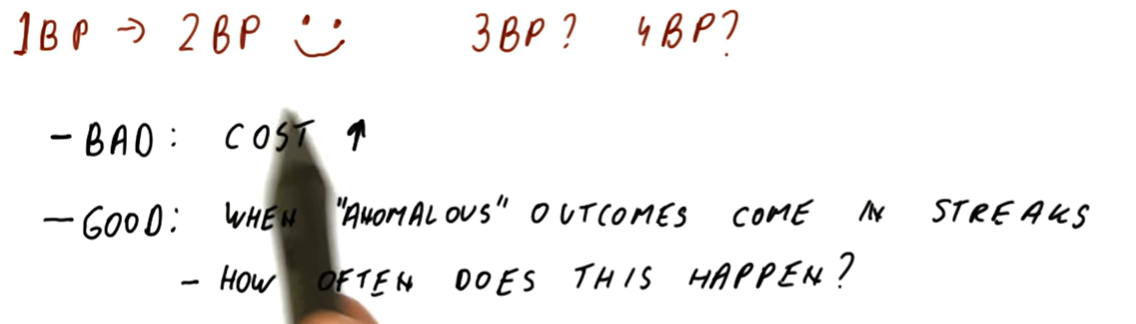 1BP → 2BP 3BP? 4BP?
- BAD: COST ↑
- GOOD: WHEN "ANOMALOUS" OUTCOMES COME IN STREAKS
- HOW OFTEN DOES THIS HAPPEN?